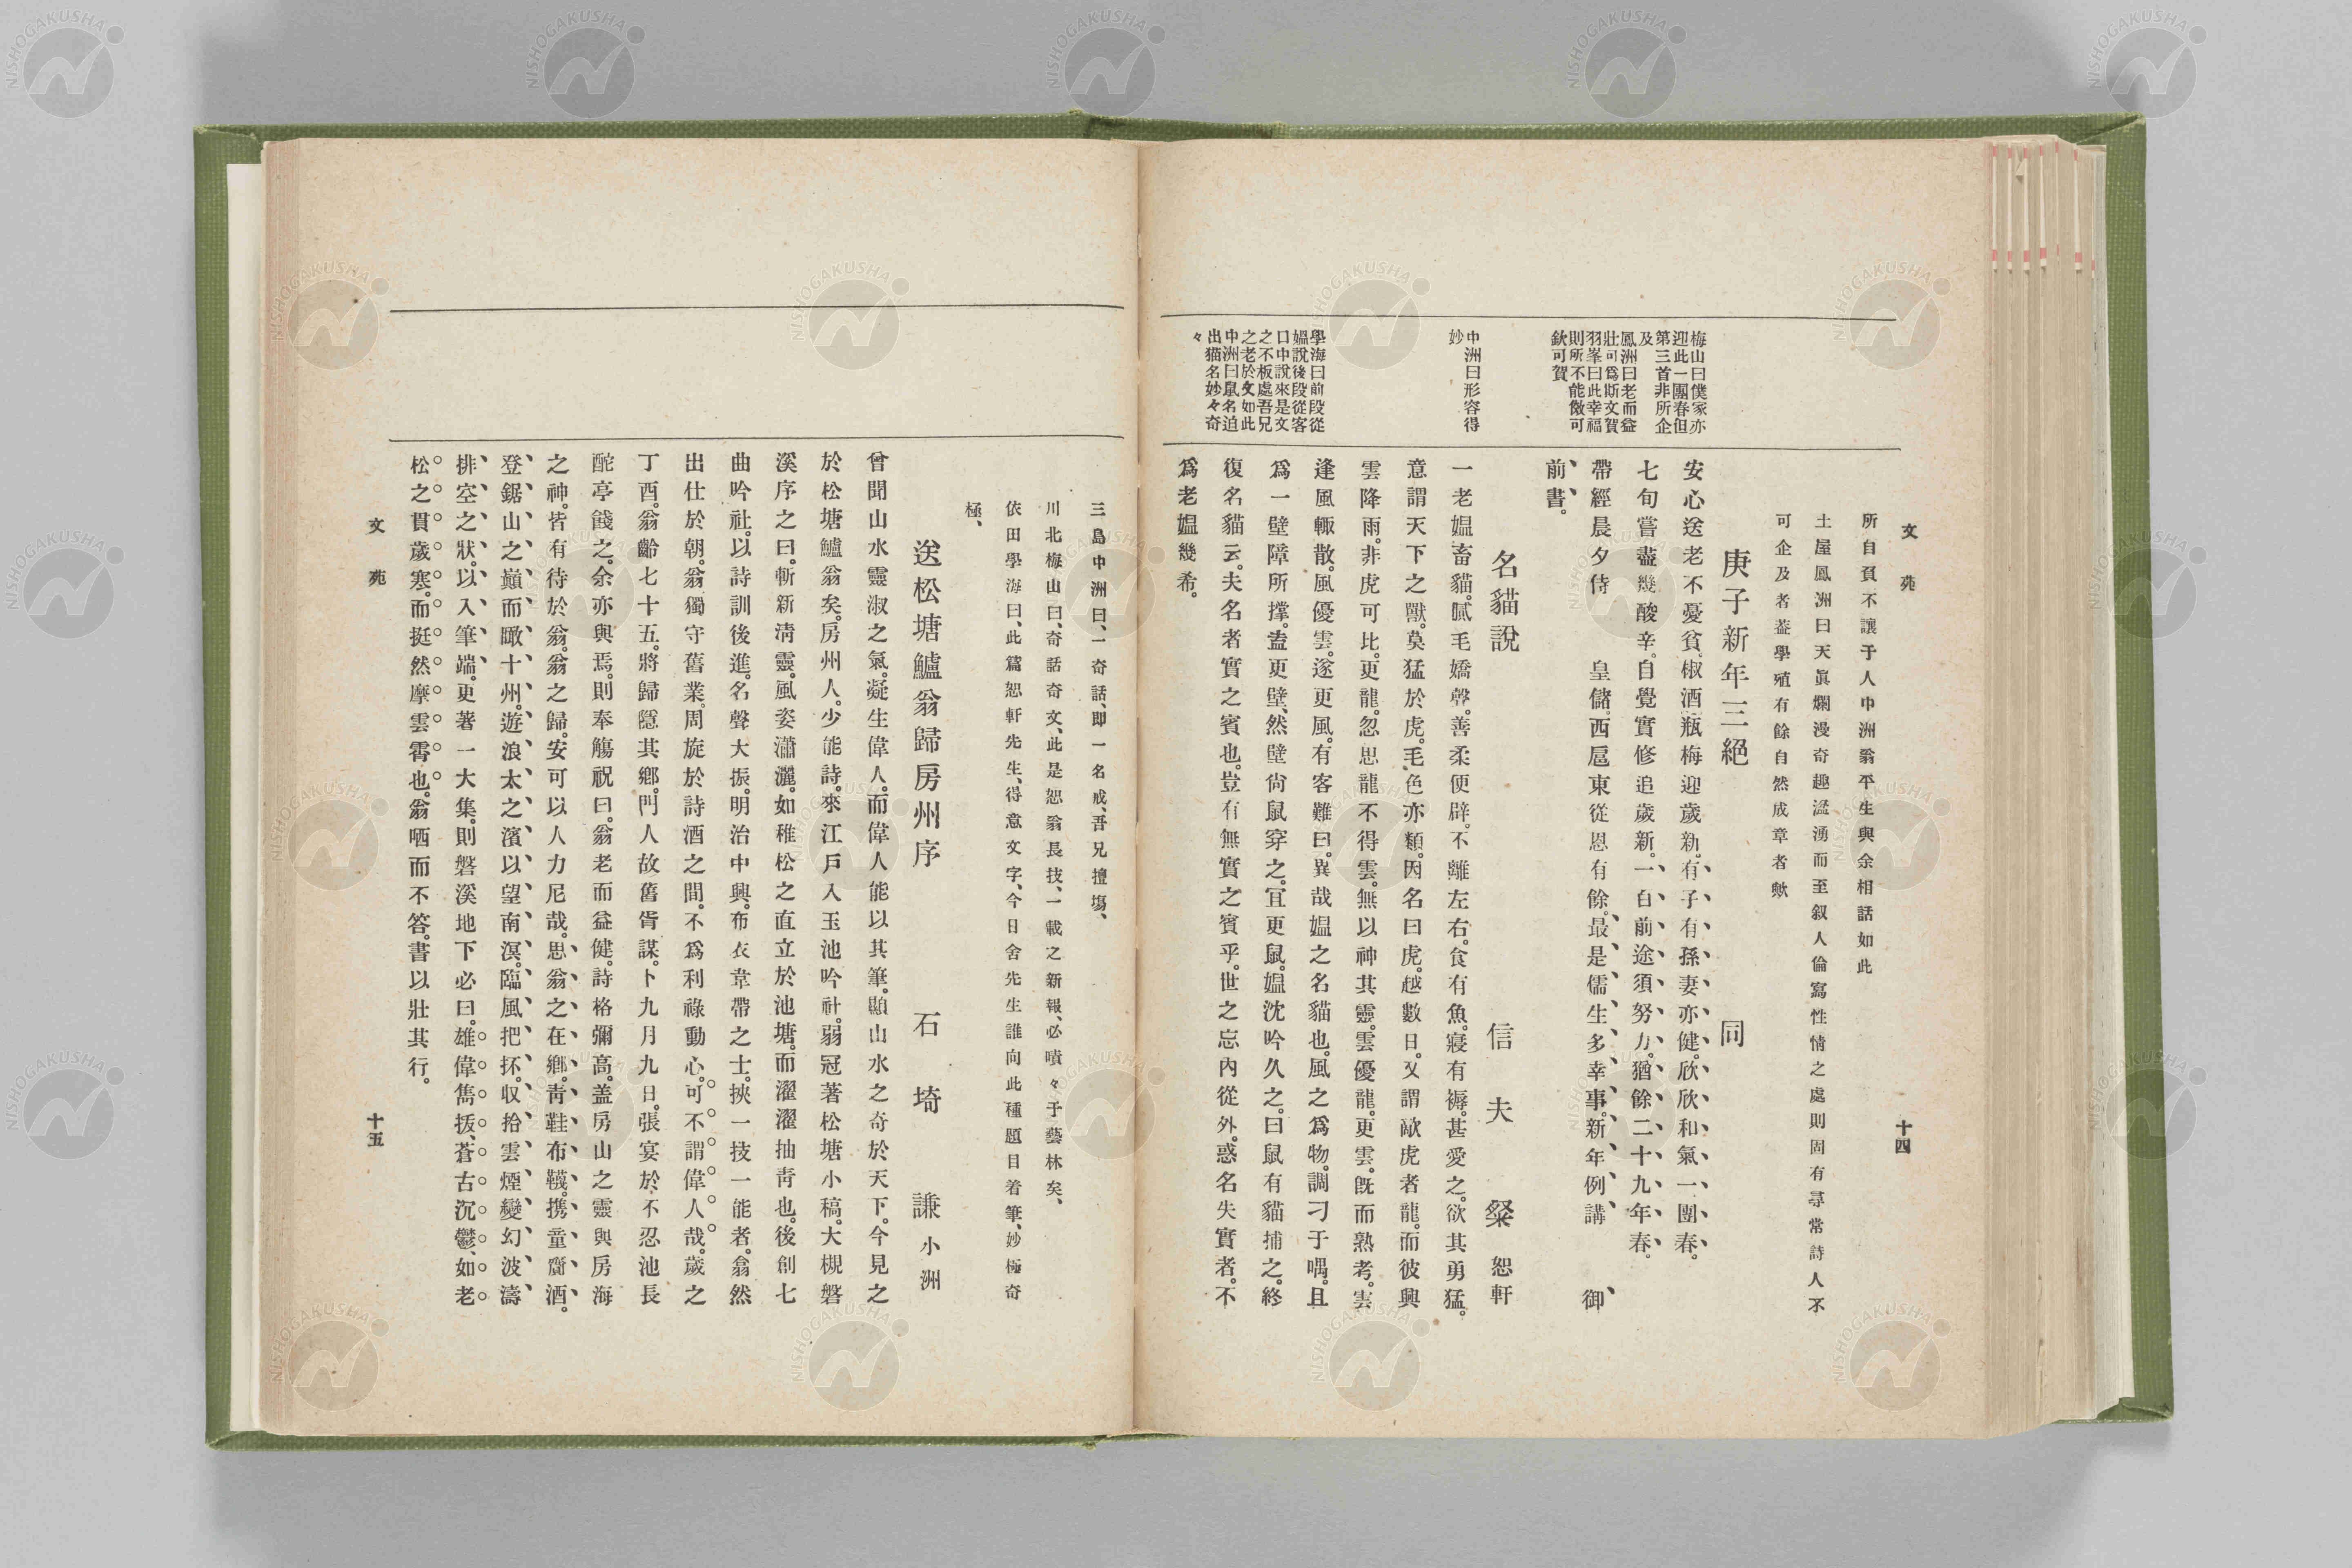 文苑
十四
所自負不讓于人中洲翁平生與余相話如此
土屋鳳洲曰天眞爛漫奇趣溢湧而至叙人倫寫性情之處則固有尋常詩人不
可企及者葢學殖有餘自然成章者歟
庚子新年三絕　同
安心送老不憂貧、椒酒瓶梅迎歲新。有子有孫妻亦健。欣欣和氣一團春。
七旬嘗盡幾酸辛。自覺實修追歲新。一白前途須努力。猶餘二十九年春。
帶經晨夕侍　皇儲。西扈東從恩有餘。最是儒生多幸事。新年例講　御
前書。
梅山曰僕家亦
迎此一團春但
第三首非所企
及
鳳洲曰老而益
壯可爲斯文賀
羽峯曰此幸福
則所不能倣可
欽可賀
名貓說　信夫粲　恕軒
一老媼畜貓。膩毛嬌聲。善柔便辟。不離左右。食有魚。寢有褥。甚愛之。欲其勇猛。
意謂天下之獸。莫猛於虎。毛色亦類。因名曰虎。越數日。又謂敵虎者龍。而彼興
雲降雨。非虎可比。更龍。忽思龍不得雲。無以神其靈。雲優龍。更雲。旣而熟考。雲
逢風輙散。風優雲。遂更風。有客難曰。異哉媼之名貓也。風之爲物。調刁于喁。且
爲一壁障所撑。盍更壁、然壁尙鼠穿之。宜更鼠。媼沈吟久之。曰鼠有貓捕之。終
復名貓云。夫名者實之賓也。豈有無實之賓乎。世之忘內從外。惑名失實者。不
爲老媼幾希。
中洲曰形容得
妙
學海曰前段從
媼說後段從客
口中說來是文
之不板處吾兄
之老於文如此
中洲曰鼠名迫
出猫名妙々奇
々
三島中洲曰、一奇話、卽一名戒、吾兄擅塲、
川北梅山曰、奇話奇文、此是恕翁長技、一載之新報、必嘖々于藝林矣、
依田學海曰、此篇恕軒先生、得意文字、今日舍先生誰向此種題目着筆、妙極奇
極、
送松塘鱸翁歸房州序　石埼謙　小洲
曾聞山水靈淑之氣。凝生偉人。而偉人能以其筆。顯山水之奇於天下。今見之
於松塘鱸翁矣。房州人。少能詩。來江戶入玉池吟社。弱冠著松塘小稿。大槻磐
溪序之曰。斬新淸靈。風姿瀟灑。如稚松之直立於池塘。而濯濯抽靑也。後創七
曲吟社。以詩訓後進。名聲大振。明治中興。布衣韋帶之士。挾一技一能者。翕然
出仕於朝。翁獨守舊業。周旋於詩酒之間。不爲利祿動心。可不謂偉人哉。歲之
丁酉。翁齡七十五。將歸隱其鄕。門人故舊胥謀。卜九月九日。張宴於不忍池長
酡亭餞之。余亦與焉。則奉觴祝曰。翁老而益健。詩格彌高。盖房山之靈與房海
之神。皆有待於翁。翁之歸。安可以人力尼哉。思翁之在鄕。靑鞋布韈。携童齎酒。
登鋸山之巓而瞰十州。遊浪太之濱以望南溟。臨風把抔。収拾雲煙變幻波濤
排空之狀。以入筆端。更著一大集。則磐溪地下必曰。雄偉雋拔、蒼古沉鬱、如老
松之貫歲寒。而挺然摩雲霄也。翁哂而不答。書以壯其行。
文苑
十五